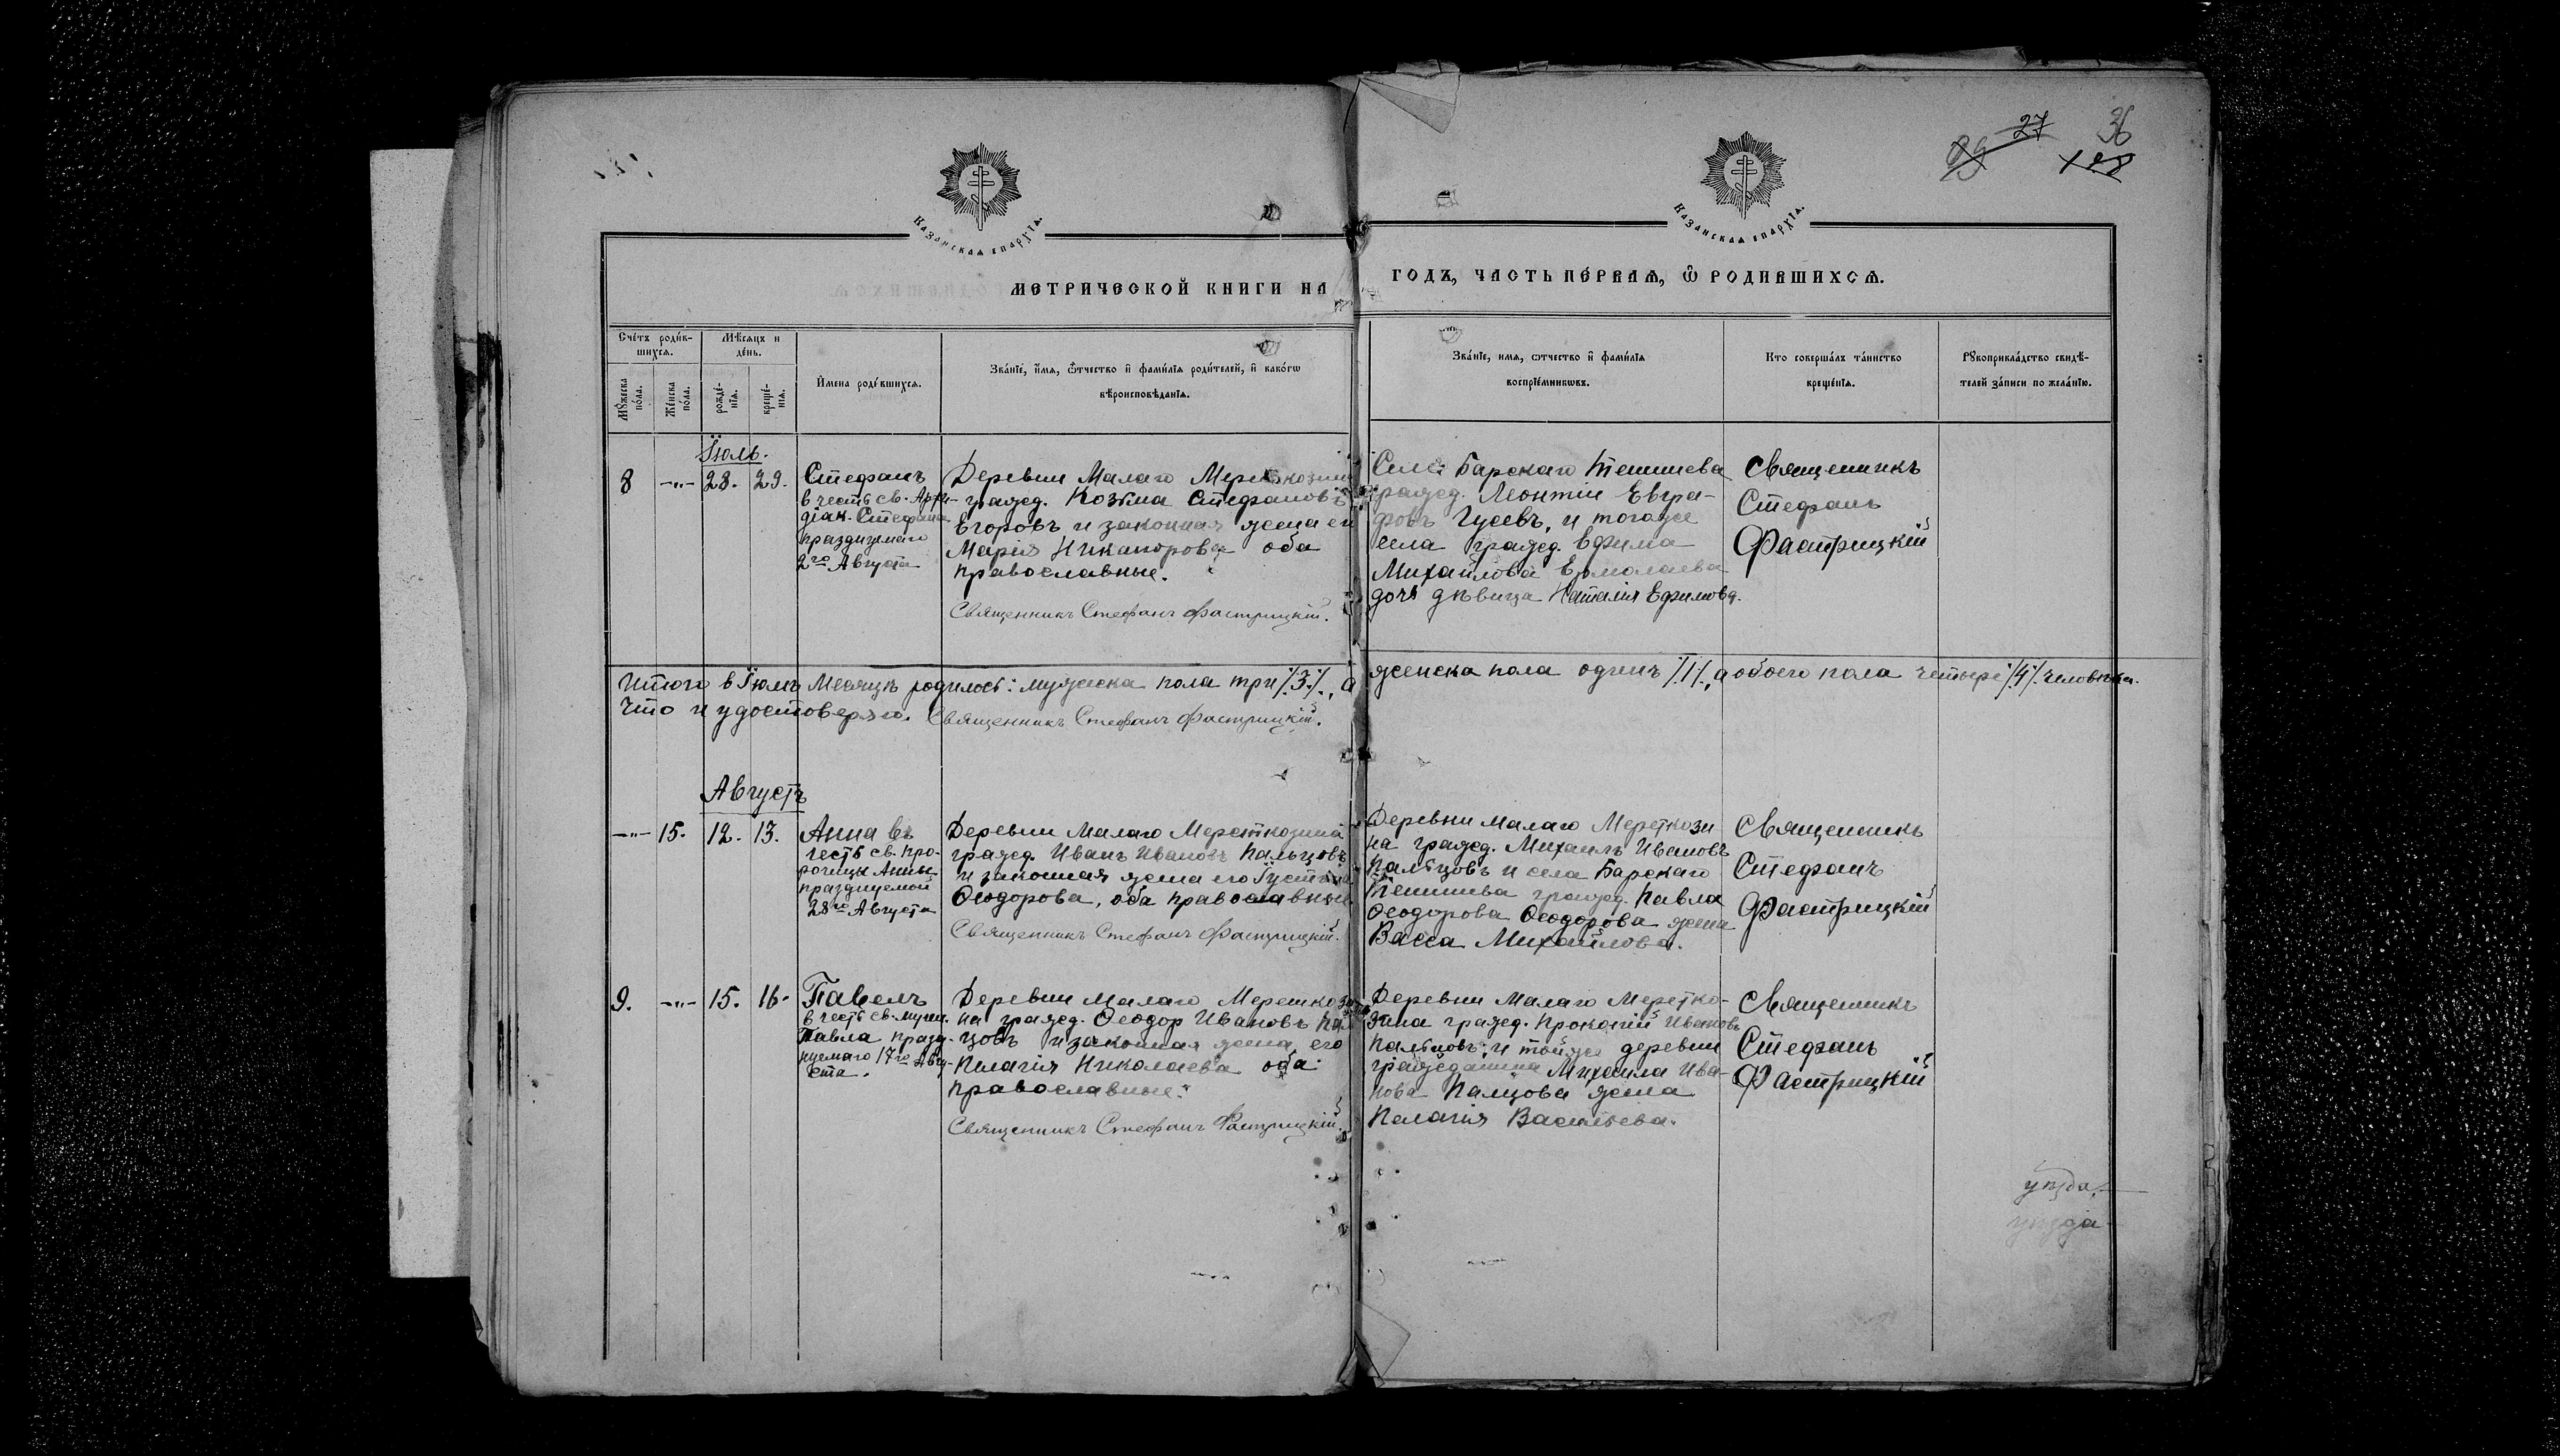 27
36
99
128
КАЗАНСКАЯ ЕПАРХІЯ.
КАЗАНСКАЯ ЕПАРХІЯ.
МЕТРИЧЕСКОЙ КНИГИ НА
ГОДЪ, ЧАСТЬ ПЕ́РВАЯ, Ѽ РОДИВШИХСЯ.
Сче́тъ роди́в-
шихся.
Мѣсяцъ и
де́нь.
Мꙋ́жеска
по́ла.
Же́нска
по́ла.
рожде́-
нія.
креще́-
нія.
И́мена роди́вшихся.
Зва́ніе, и́мя, ѻ҆́тчество и҆ фами́лія роди́телей, и҆ како́гѡ
вѣроисповѣ́данія.
Зва́ніе, имя, ѻтчество и҆ фами́лія
воспріе́мниковъ.
Кто соверша́лъ та́инство
креще́нія.
Рꙋкоприкла́дство свидѣ́-
телей за́писи по жела́нію.
Іюль.
8 -„- 28. 29.
Стефанъ
в честь св. Архи-
діак. Стефана
празднуемаго
2го Августа
Деревни Малаго Мереткозина
гражд. Козьма Стефановъ
Егоровъ и законная жена его
Марія Никанорова оба
православные.
Священникъ Стефанъ Фастрицкій.
Села Барскаго Тенишева
гражд. Леонтій Евгра-
фовъ Гусевъ, и тогоже
села гражд. Ефима
Михайлова Ермолаева
дочь дѣвица Наталія Ефимова.
Священникъ
Стефанъ
Фастрицкій
Итого в Іюлѣ Месяцѣ родилось: мужеска пола три /3/., а женска пола одинъ /1/., а обоего пола четыре /4/ человѣка.
Что и удостоверяю. Священникъ Стефанъ Фастрицкій.
Августъ
-„- 15. 12. 13.
Анна въ
честь св. Про-
рочицы Анны
празднуемой
28го Августа
Деревни Малаго Мереткозина
гражд. Иванъ Ивановъ Пальцовъ
и законная жена его Іустина
Ѳеодорова, оба православные
Священникъ Стефанъ Фастрицкій.
Деревни Малаго Мереткози
на гражд. Михаилъ Ивановъ
Пальцовъ и села Барскаго
Тенишева гражд. Павла
Ѳеодорова Ѳеодорова жена
Васса Михайлова.
Священникъ
Стефанъ
Фастрицкій
9. -„- 15. 16.
Павелъ
в честь св. мучен.
Павла празд-
нуемаго 17го Авгу-
ста.
Деревни Малаго Мереткози-
на гражд. Ѳеодор Ивановъ Па
цовъ и законная жена его
Пелагія Николаева оба
православные.
Священникъ Стефанъ Фастрицкій.
Деревни Малаго Меретко-
зина гражд. Прокопій Ивановъ
Пальцовъ; и тойже деревни
гражданина Михаила Ива-
нова Палцова жена
Пелагія Васильева.
Священникъ
Стефанъ
Фастрицкій
уѣзда
уѣзда